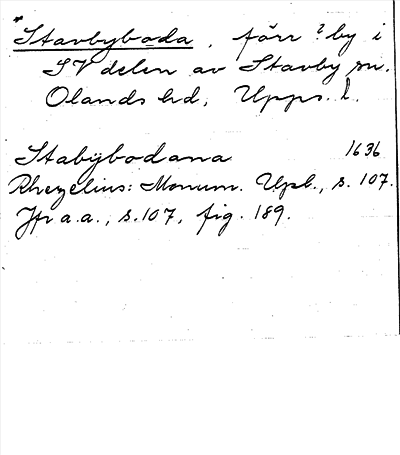 *Stavbyboda, förr ? by i
SV delen av Stavby sn.
Olands hd, Upps. l.
Stabÿbodana 1636
Rhezelius: Monum. Upl., s. 107.
Jfr a.a., s. 107, fig. 189.